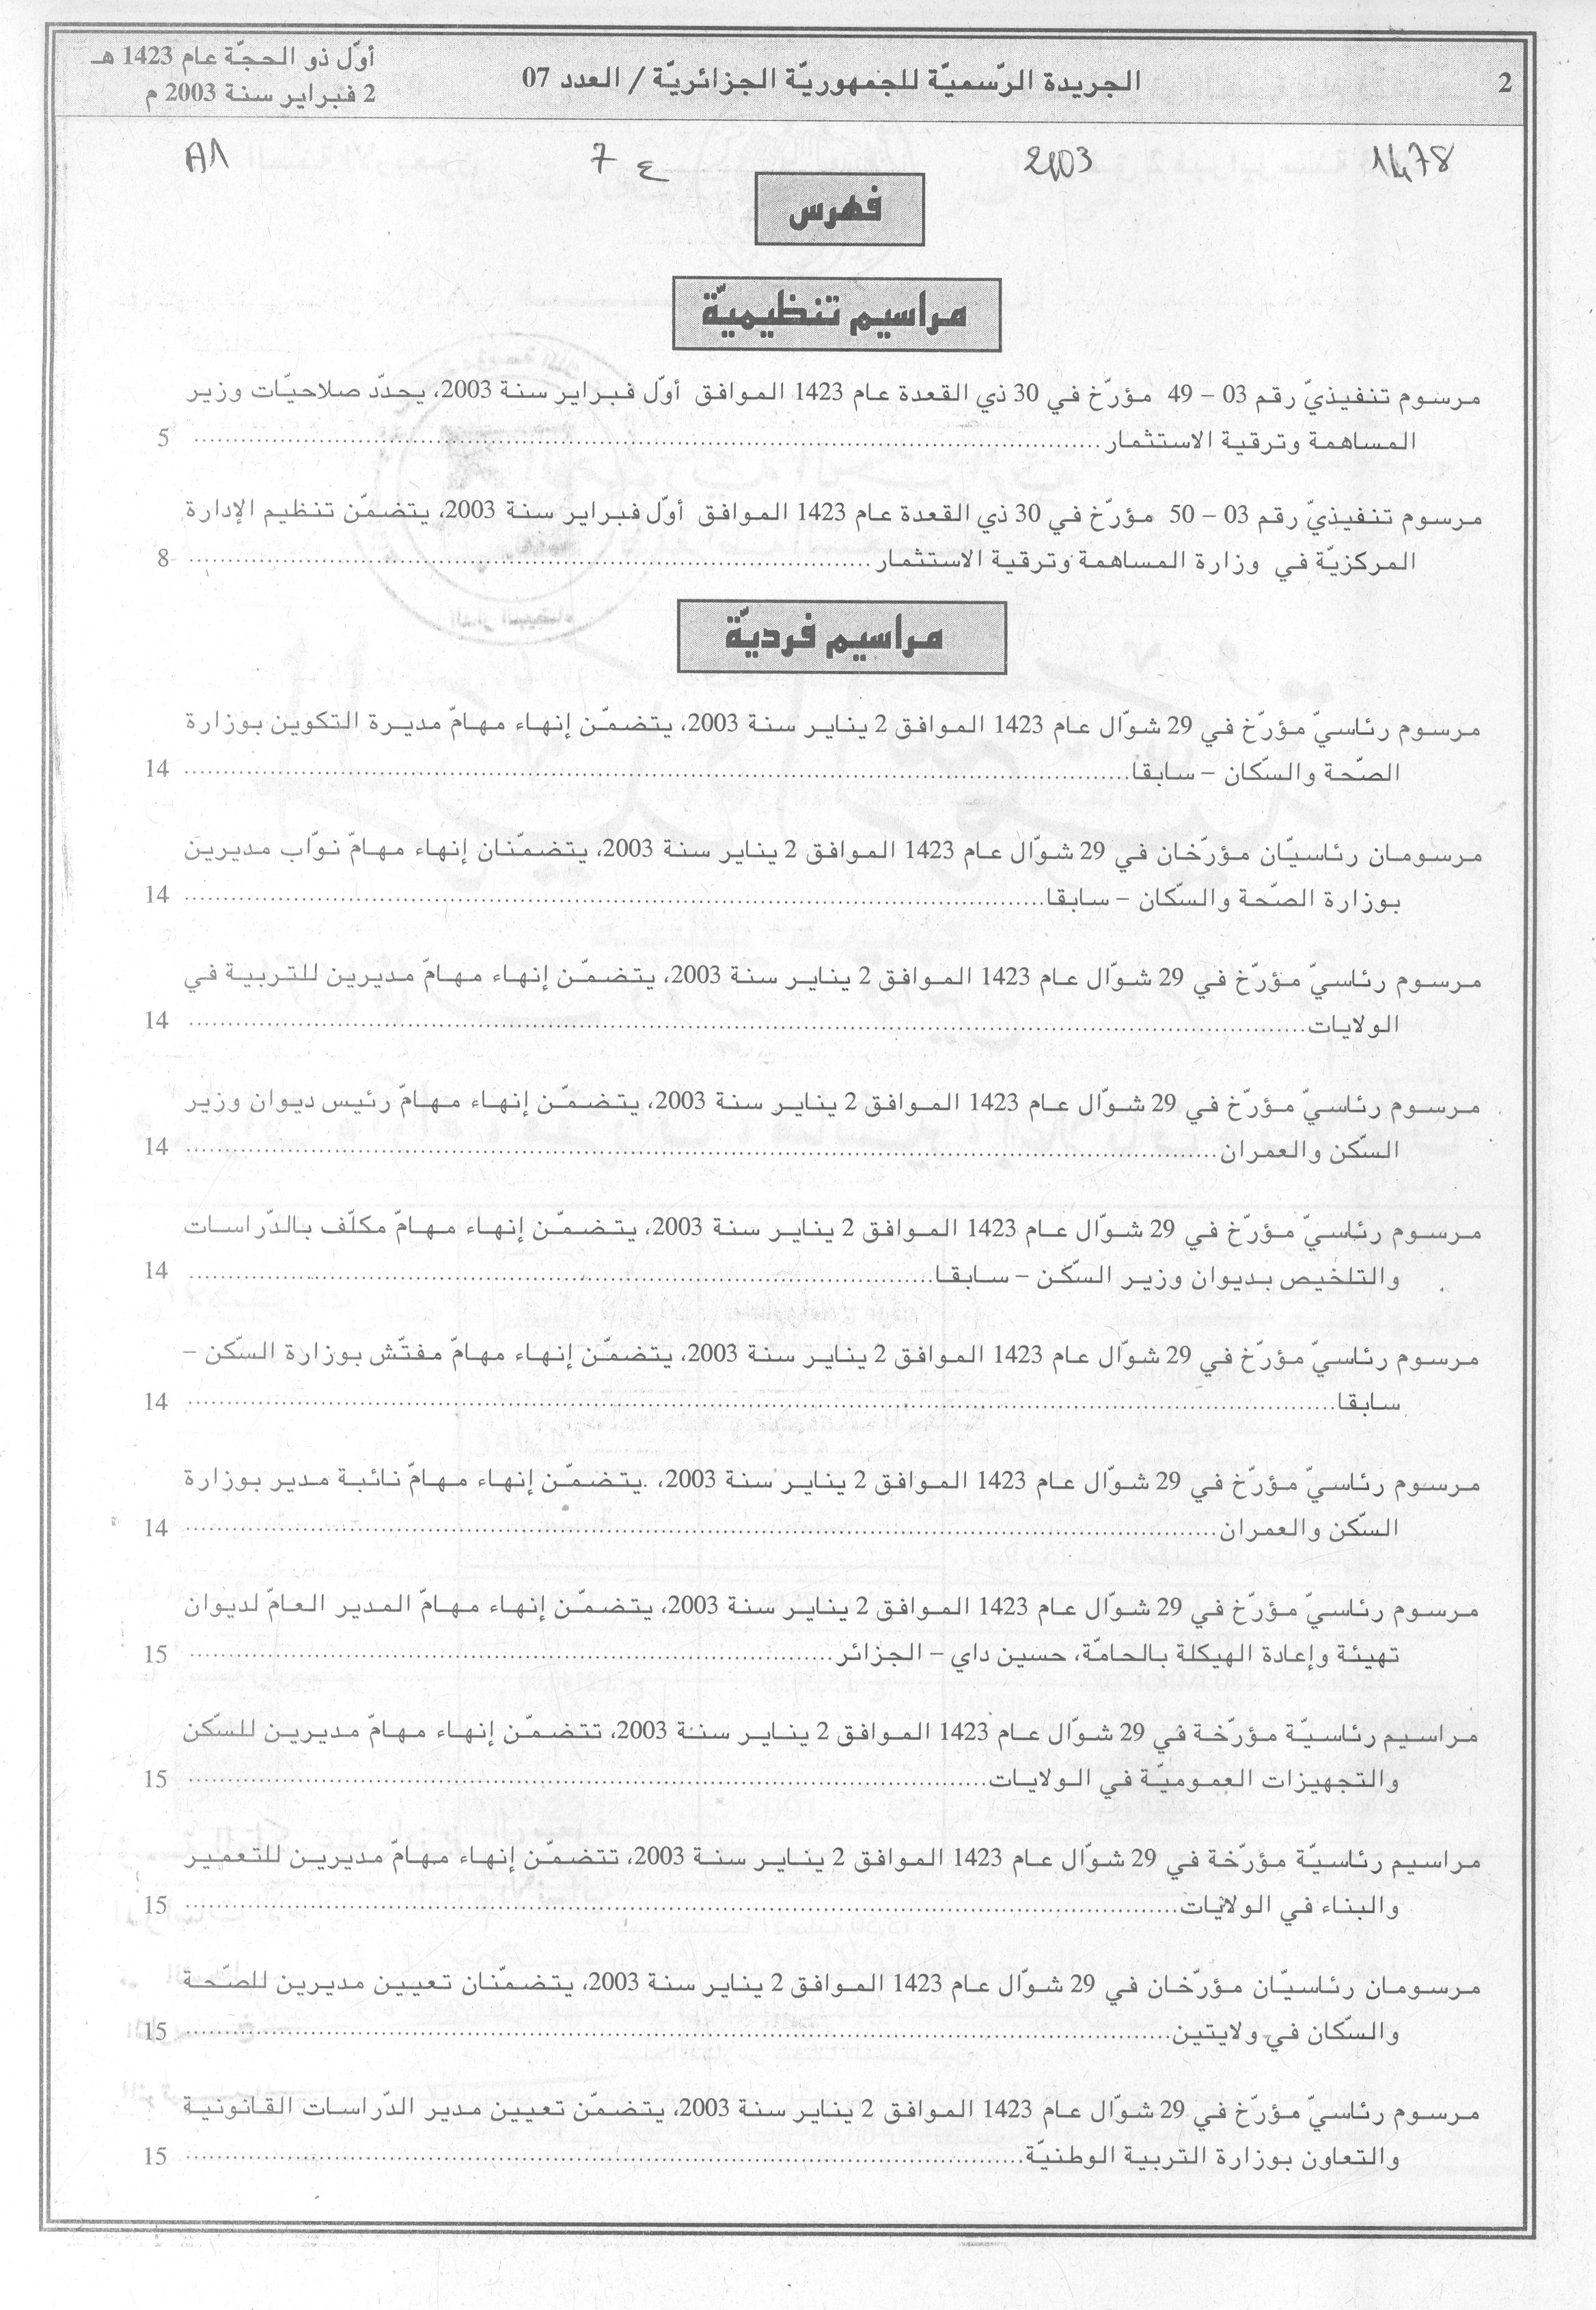 2
الجريدة الرّسميّة للجمهوريّة الجزائريّة / العدد 07
أوّل ذو الحجّة عام 1423 هـ
2 فبراير سنة 2003 م
1478 2003 ع 7 A1
فهرس
مراسيم تنظيميّة
مرسوم تنفيذيّ رقم 03 – 49 مؤرّخ في 30 ذي القعدة عام 1423 الموافق أوّل فبراير سنة 2003، يحدّد صلاحيّات وزير
المساهمة وترقية الاستثمار ........ 5
مرسوم تنفيذيّ رقم 03 – 50 مؤرّخ في 30 ذي القعدة عام 1423 الموافق أوّل فبراير سنة 2003، يتضمّن تنظيم الإدارة
المركزيّة في وزارة المساهمة وترقية الاستثمار ........ 8
مراسيم فرديّة
مرسوم رئاسيّ مؤرّخ في 29 شوّال عام 1423 الموافق 2 يناير سنة 2003، يتضمّن إنهاء مهامّ مديرة التكوين بوزارة
الصّحة والسّكان – سابقا ........ 14
مرسومان رئاسيّان مؤرّخان في 29 شوّال عام 1423 الموافق 2 يناير سنة 2003، يتضمّنان إنهاء مهامّ نوّاب مديرين
بوزارة الصّحة والسّكان – سابقا ........ 14
مرسوم رئاسيّ مؤرّخ في 29 شوّال عام 1423 الموافق 2 يناير سنة 2003، يتضمّن إنهاء مهامّ مديرين للتربية في
الولايات ........ 14
مرسوم رئاسيّ مؤرّخ في 29 شوّال عام 1423 الموافق 2 يناير سنة 2003، يتضمّن إنهاء مهامّ رئيس ديوان وزير
السّكن والعمران ........ 14
مرسوم رئاسيّ مؤرّخ في 29 شوّال عام 1423 الموافق 2 يناير سنة 2003، يتضمّن إنهاء مهامّ مكلّف بالدّراسات
والتلخيص بديوان وزير السّكن – سابقا ........ 14
مرسوم رئاسيّ مؤرّخ في 29 شوّال عام 1423 الموافق 2 يناير سنة 2003، يتضمّن إنهاء مهامّ مفتّش بوزارة السّكن –
سابقا ........ 14
مرسوم رئاسيّ مؤرّخ في 29 شوّال عام 1423 الموافق 2 يناير سنة 2003، يتضمّن إنهاء مهامّ نائبة مدير بوزارة
السّكن والعمران ........ 14
مرسوم رئاسيّ مؤرّخ في 29 شوّال عام 1423 الموافق 2 يناير سنة 2003، يتضمّن إنهاء مهامّ المدير العامّ لديوان
تهيئة وإعادة الهيكلة بالحامّة، حسين داي – الجزائر ........ 15
مراسيم رئاسيّة مؤرّخة في 29 شوّال عام 1423 الموافق 2 يناير سنة 2003، تتضمّن إنهاء مهامّ مديرين للسّكن
والتجهيزات العموميّة في الولايات ........ 15
مراسيم رئاسيّة مؤرّخة في 29 شوّال عام 1423 الموافق 2 يناير سنة 2003، تتضمّن إنهاء مهامّ مديرين للتعمير
والبناء في الولايات ........ 15
مرسومان رئاسيّان مؤرّخان في 29 شوّال عام 1423 الموافق 2 يناير سنة 2003، يتضمّنان تعيين مديرين للصّحة
والسّكان في ولايتين ........ 15
مرسوم رئاسيّ مؤرّخ في 29 شوّال عام 1423 الموافق 2 يناير سنة 2003، يتضمّن تعيين مدير الدّراسات القانونية
والتعاون بوزارة التربية الوطنيّة ........ 15